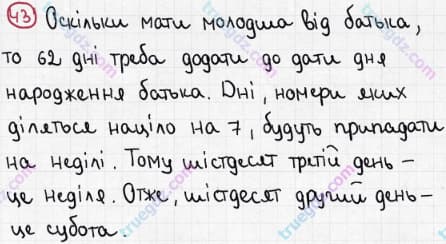 43 Оскільки мати молодша від батька,
то 62 дні треба додати до дати дня
народження батька. Дні, номери яких
діляться націло на 7, будуть припадати
на неділі. Тому шістдесят третій день –
це неділя. Отже, шістдесят другий день –
це субота.